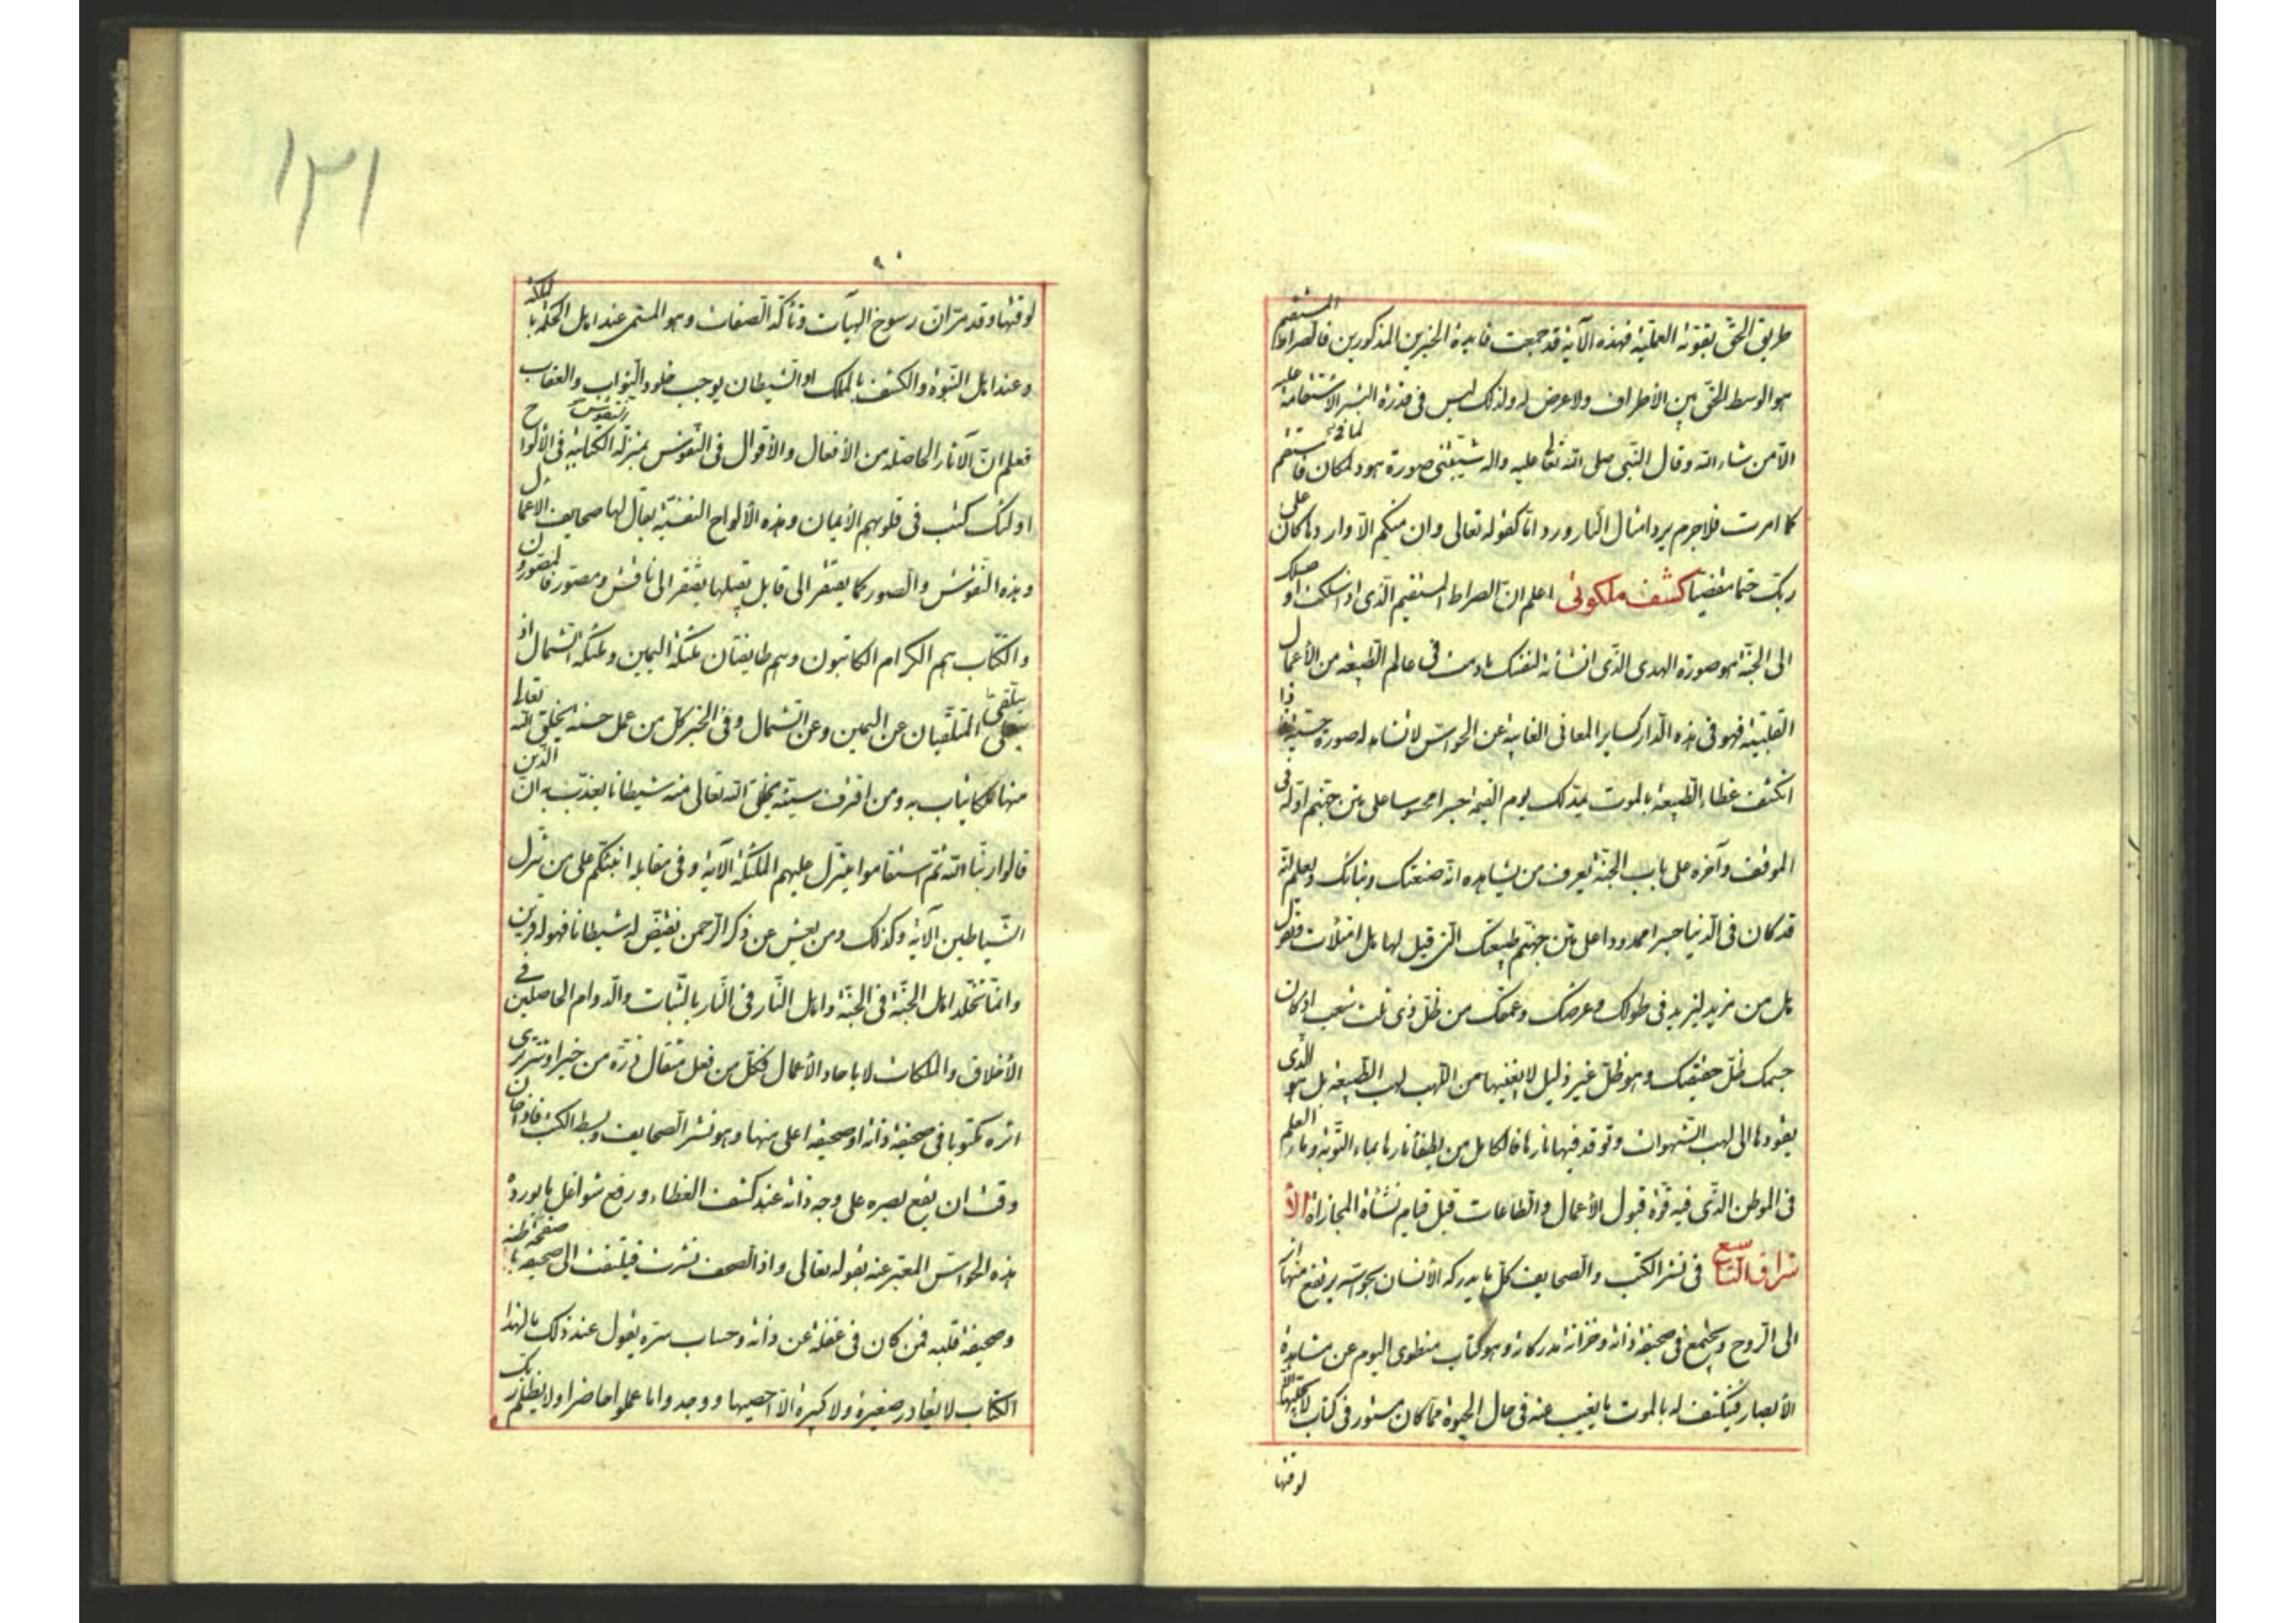 طريق الحق بقوته العملية فهذه الآية قد جمعت فايدة الخبرين المذكورين فالصراط المستقيم
هو الوسط الحق بين الأطراف ولا عرض له ولذلك ليس في قدرة البشر الاستقامة عليه
الا من شاء الله وقال النبي صلى الله تعالى عليه واله شيبتني سورة هود لمكان فاستقم
كما امرت فلا جرم يرد امثال النار ورودا ما كقوله تعالى وان منكم الا واردها كان على
ربك حتما مقضيا كشف ملكوتى اعلم ان الصراط المستقيم الذى اذا سلكت اوصلك
الى الجنة هو صورة الهدى الذى انشأته لنفسك مادمت فى عالم الطبيعة من الأعمال
القلبية فهو فى هذه الدار كساير المعانى الغايبة عن الحواس لا تشاهد له صورة حسية فاذا
انكشف غطاء الطبيعة بالموت يمد لك يوم القيمة جسرا محسوسا على متن جهنم اوله فى
الموقف وآخره على باب الجنة يعرف من يشاهده انه صنعتك وبناؤك ويعلم انه
قد كان فى الدنيا جسرا ممدودا على متن جهنم طبيعتك التى قيل لها هل امتلأت فتقول
هل من مزيد ليزيد فى طولك وعرضك وعمقك من ظل ذى ثلث شعب اذ كان
جسمك ظل حقيقتك وهو ظل غير ظليل لا يغنيها من اللهب لهب الطبيعة بل هو الذى
يقودها الى لهب الشهوات وتوقد فيها نارها فالكامل من يطفأ نارها بماء التوبة وماء العلم
فى الموطن الذى فيه قوة قبول الأعمال والطاعات قبل قيام نشأة المجازاة الأ
شراق التاسع فى نشر الكتب والصحايف كل ما يدركه الأنسان بحواسه يرتفع منها اثر
الى الروح ويجتمع فى صحيفة ذاته وخزانة مدركاته وهو كتاب منطوى اليوم عن مشاهدة
الأبصار فيكشف له بالموت ما يغيب عنه فى حال الحيوة مما كان مسطورا فى كتاب لا يجليها الا
لوقتها
١٣١
٩٠
لوقتها وقد مر ان رسوخ الهيآت وتأكد الصفات وهو المسمى عند اهل الحكمة بالملكة
وعند اهل النبوة والكشف بالملك او الشيطان يوجب خلود الثواب والعقاب
فعلم ان الآثار الحاصلة من الأفعال والأقوال فى النفوس بمنزلة الكتابة فى الألواح
اولئك كتب فى قلوبهم الأيمان وهذه الألواح النفسية يقال لها صحايف الاعمال
وهذه النقوش والصور كما يفتقر الى قابل يقبلها يفتقر الى ناقش ومصور فالمصورون
والكتاب هم الكرام الكاتبون وهم طايفتان ملئكة اليمين وملئكة الشمال اذ
يتلقى المتلقيان عن اليمين وعن الشمال وفى الخبر كل من عمل حسنة يخلق الله تعالى
منها ملكا يثاب به ومن اقترف سيئة يخلق الله تعالى منه شيطانا يعذب به ان الذين
قالوا ربنا الله ثم استقاموا يتنزل عليهم الملئكة الآية وفى مقابله انبئكم على من تنزل
الشياطين الآية وكذلك ومن يعش عن ذكر الرحمن نقيض له شيطانا فهو له قرين
وانما تخلد اهل الجنة فى الجنة واهل النار فى النار بالثبات والدوام الحاصلين فى
الأخلاق والملكات لا باحاد الأعمال فكل من فعل مثقال ذرة من خير او شر يرى
اثره مكتوبا فى صحيفة ذاته او صحيفة اعلى منها وهو نشر الصحايف وبسط الكتب فاذا حان
وقت ان يقع بصره على وجه ذاته عند كشف الغطاء ورفع شواغل ما يورده
هذه الحواس المعبر عنه بقوله تعالى واذا الصحف نشرت فيلتفت الى صحيفة باطنه
وصحيفة قلبه فمن كان فى غفلة عن ذاته وحساب سره يقول عند ذلك ما لهذا
الكتاب لا يغادر صغيرة ولا كبيرة الا احصيها ووجدوا ما عملوا حاضرا ولا يظلم ربك